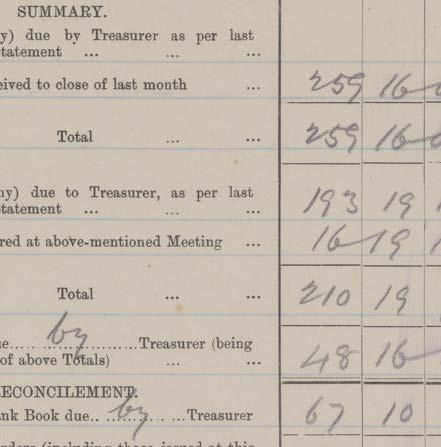 SUMMARY.
y) due by Treasurer as per last
tatement ... ... ...
eived to close of last month ... 259 16
Total ... ... 259 16
ny) due to Treasurer, as per last
tatement ... ... ... 193 19
red at above-mentioned Meeting ... 16 19
Total ... ... 210 19
e by Treasurer (being
of above Totals) ... ... 48 16
ECONCILEMENT.
nk Book due.. by ...Treasurer 67 10